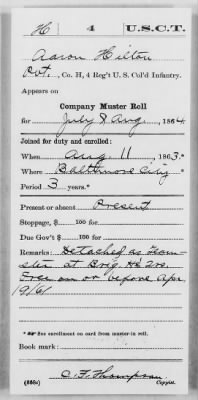 H 4 U.S.C.T.
Aaron Hilton
Pvt., Co. H, 4 Reg't U. S. Col'd Infantry.
Appears on
Company Muster Roll
for July & Aug., 1864.
Joined for duty and enrolled:
When Aug 11, 1863.*
Where Baltimore City*
Period 3 years.*
Present or absent Present
Stoppage, $ 100 for
Due Gov't $ 100 for
Remarks: Detached as Team-
ster at Brig. Hd Qrs.
Free on or before Apr
19/61
* See enrollment on card from muster-in roll.
Book mark:
C. F. Thompson
Copyist.